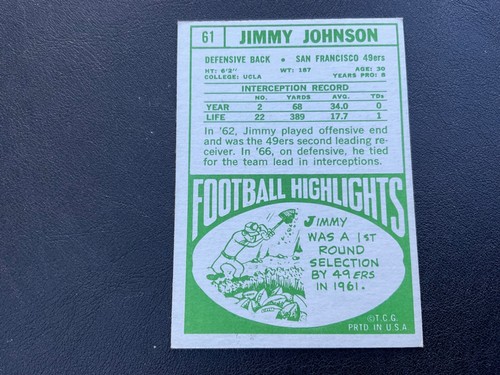 61 JIMMY JOHNSON
DEFENSIVE BACK • SAN FRANCISCO 49ers
HT: 6'2" WT: 187 AGE: 30
COLLEGE: UCLA YEARS PRO: 8
INTERCEPTION RECORD
NO. YARDS AVG. TDs
YEAR 2 68 34.0 0
LIFE 22 389 17.7 1
In '62, Jimmy played offensive end
and was the 49ers second leading re-
ceiver. In '66, on defensive, he tied
for the team lead in interceptions.
FOOTBALL HIGHLIGHTS
JIMMY
WAS A 1ST
ROUND
SELECTION
BY 49ERS
IN 1961.
©T.C.G.
PRTD IN U.S.A.